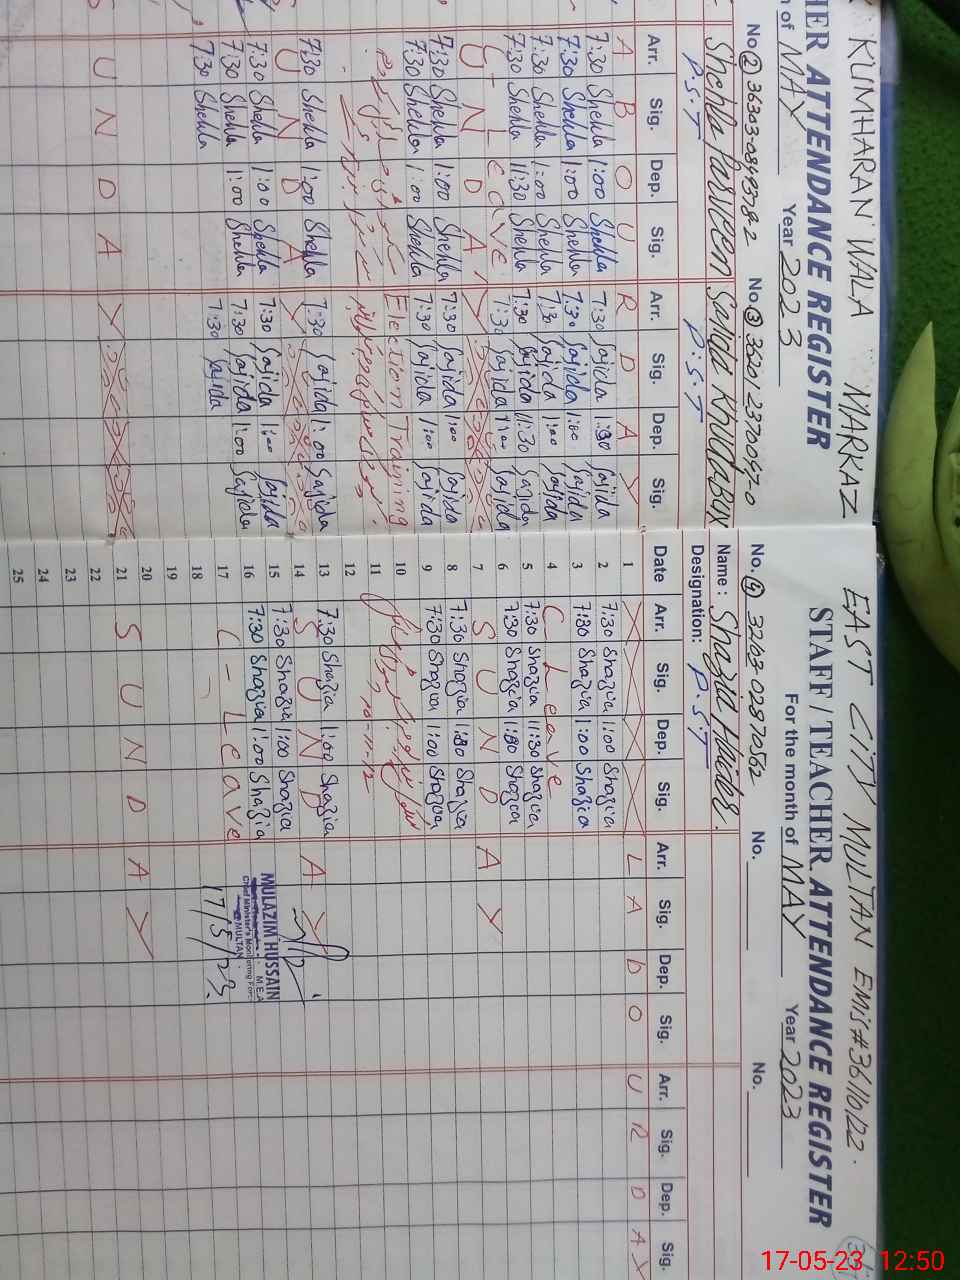 KUMHARAN WALA MARKAZ
HER ATTENDANCE REGISTER
h of MAY Year 2023
No 2 36303-0845378-2 No 3 36201 2370047-0
Shehla Parveen Sajida Khudabux
P.S.T P.S.T
Arr. Sig. Dep. Sig. Arr. Sig. Dep. Sig.
A B O U R D A Y
7:30 Shehla 1:00 Shehla 7:30 Sajida 1:30 Sajida
7:30 Shehla 1:00 Shehla 7:30 Sajida 1:00 Sajida
7:30 Shehla 1:00 Shehla 7:30 Sajida 1:00 Sajida
7:30 Shehla 11:30 Shehla 7:30 Sajida 11:30 Sajida
C- Leave 7:30 Sajida 11:00 Sajida
U N D A Y
7:30 Shehla 1:00 Shehla 7:30 Sajida 1:00 Sajida
7:30 Shehla 1:00 Shehla 7:30 Sajida 1:00 Sajida
Election Training
7:30 Shehla 1:00 Shehla 7:30 Sajida 1:00 Sajida
U N D A Y
7:30 Shehla 1:00 Shehla 7:30 Sajida 1:00 Sajida
7:30 Shehla 1:00 Shehla 7:30 Sajida 1:00 Sajida
7:30 Shehla 7:30 Sajida
U N D A Y
EAST CITY MULTAN EMIS#36110122.
STAFF / TEACHER ATTENDANCE REGISTER
For the month of MAY Year 2023
No. 4 32203-02870562 No. No.
Name: Shazia Haider.
Designation: P.S.T
Date Arr. Sig. Dep. Sig. Arr. Sig. Dep. Sig. Arr. Sig. Dep. Sig.
1 L A b O U R D A Y
2 7:30 Shazia 1:00 Shazia
3 7:30 Shazia 1:00 Shazia
4 C Leave
5 7:30 Shazia 11:30 Shazia
6 7:30 Shazia 11:30 Shazia
7 S U N D A Y
8 7:30 Shazia 1:30 Shazia
9 7:30 Shazia 1:00 Shazia
10
11 10-11-12
12
13 7:30 Shazia 1:00 Shazia
14 S U N D A Y
15 7:30 Shazia 1:00 Shazia
16 7:30 Shazia 1:00 Shazia
17 C - Leave
MULAZIM HUSSAIN
M.E.A
Chief Minister's Monitoring Force
MULTAN
17/5/23.
18
19
20
21 S U N D A Y
22
23
24
25
17-05-23 12:50